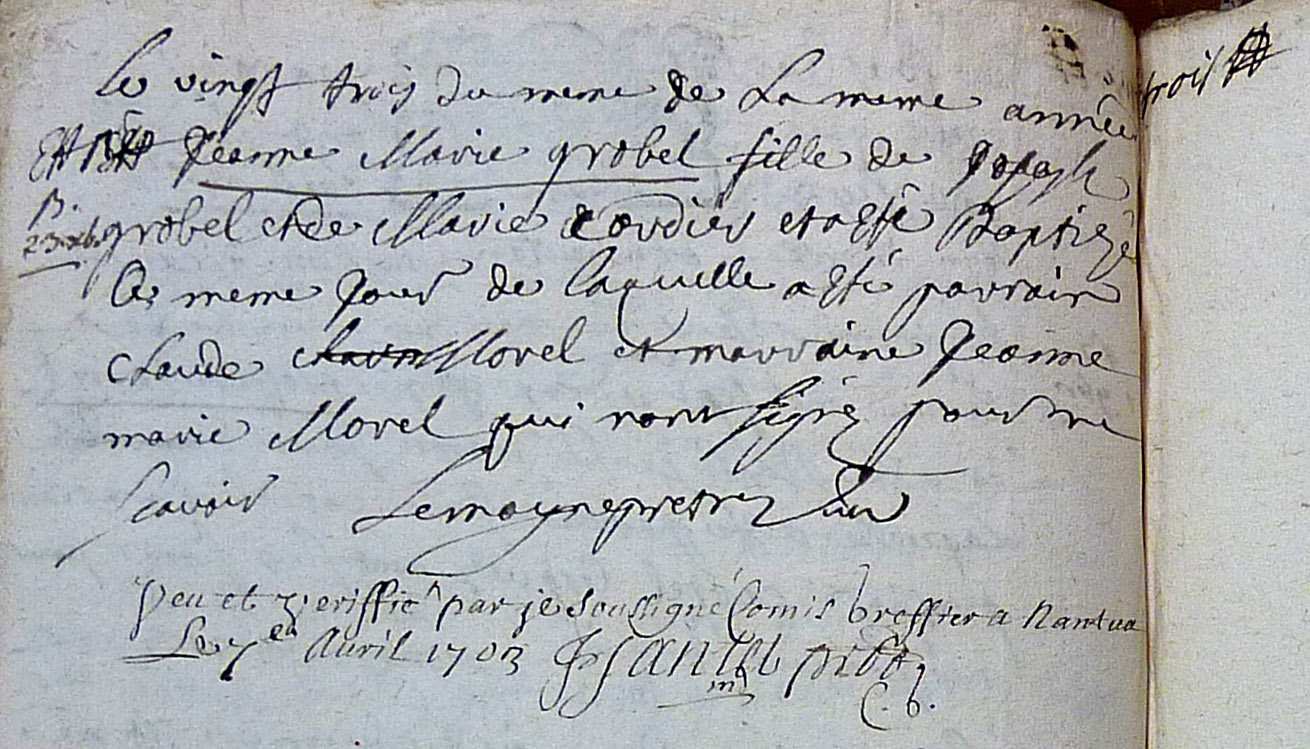 le vingt trois du meme de La meme année
Jeanne Marie grobel fille de Joseph
B. grobel et de Marie Cordier et a esté Baptizé
23 xb.
Ce meme Jour de laquelle a esté parrain
claude Morel et marraine Jeanne
marie Morel qui nont signez pour ne
scavoir Lemoyne pretre
Veu et veriffié par je soussigné Comis Greffier a Nantua
Le 7e Avril 1703
C. G.
trois